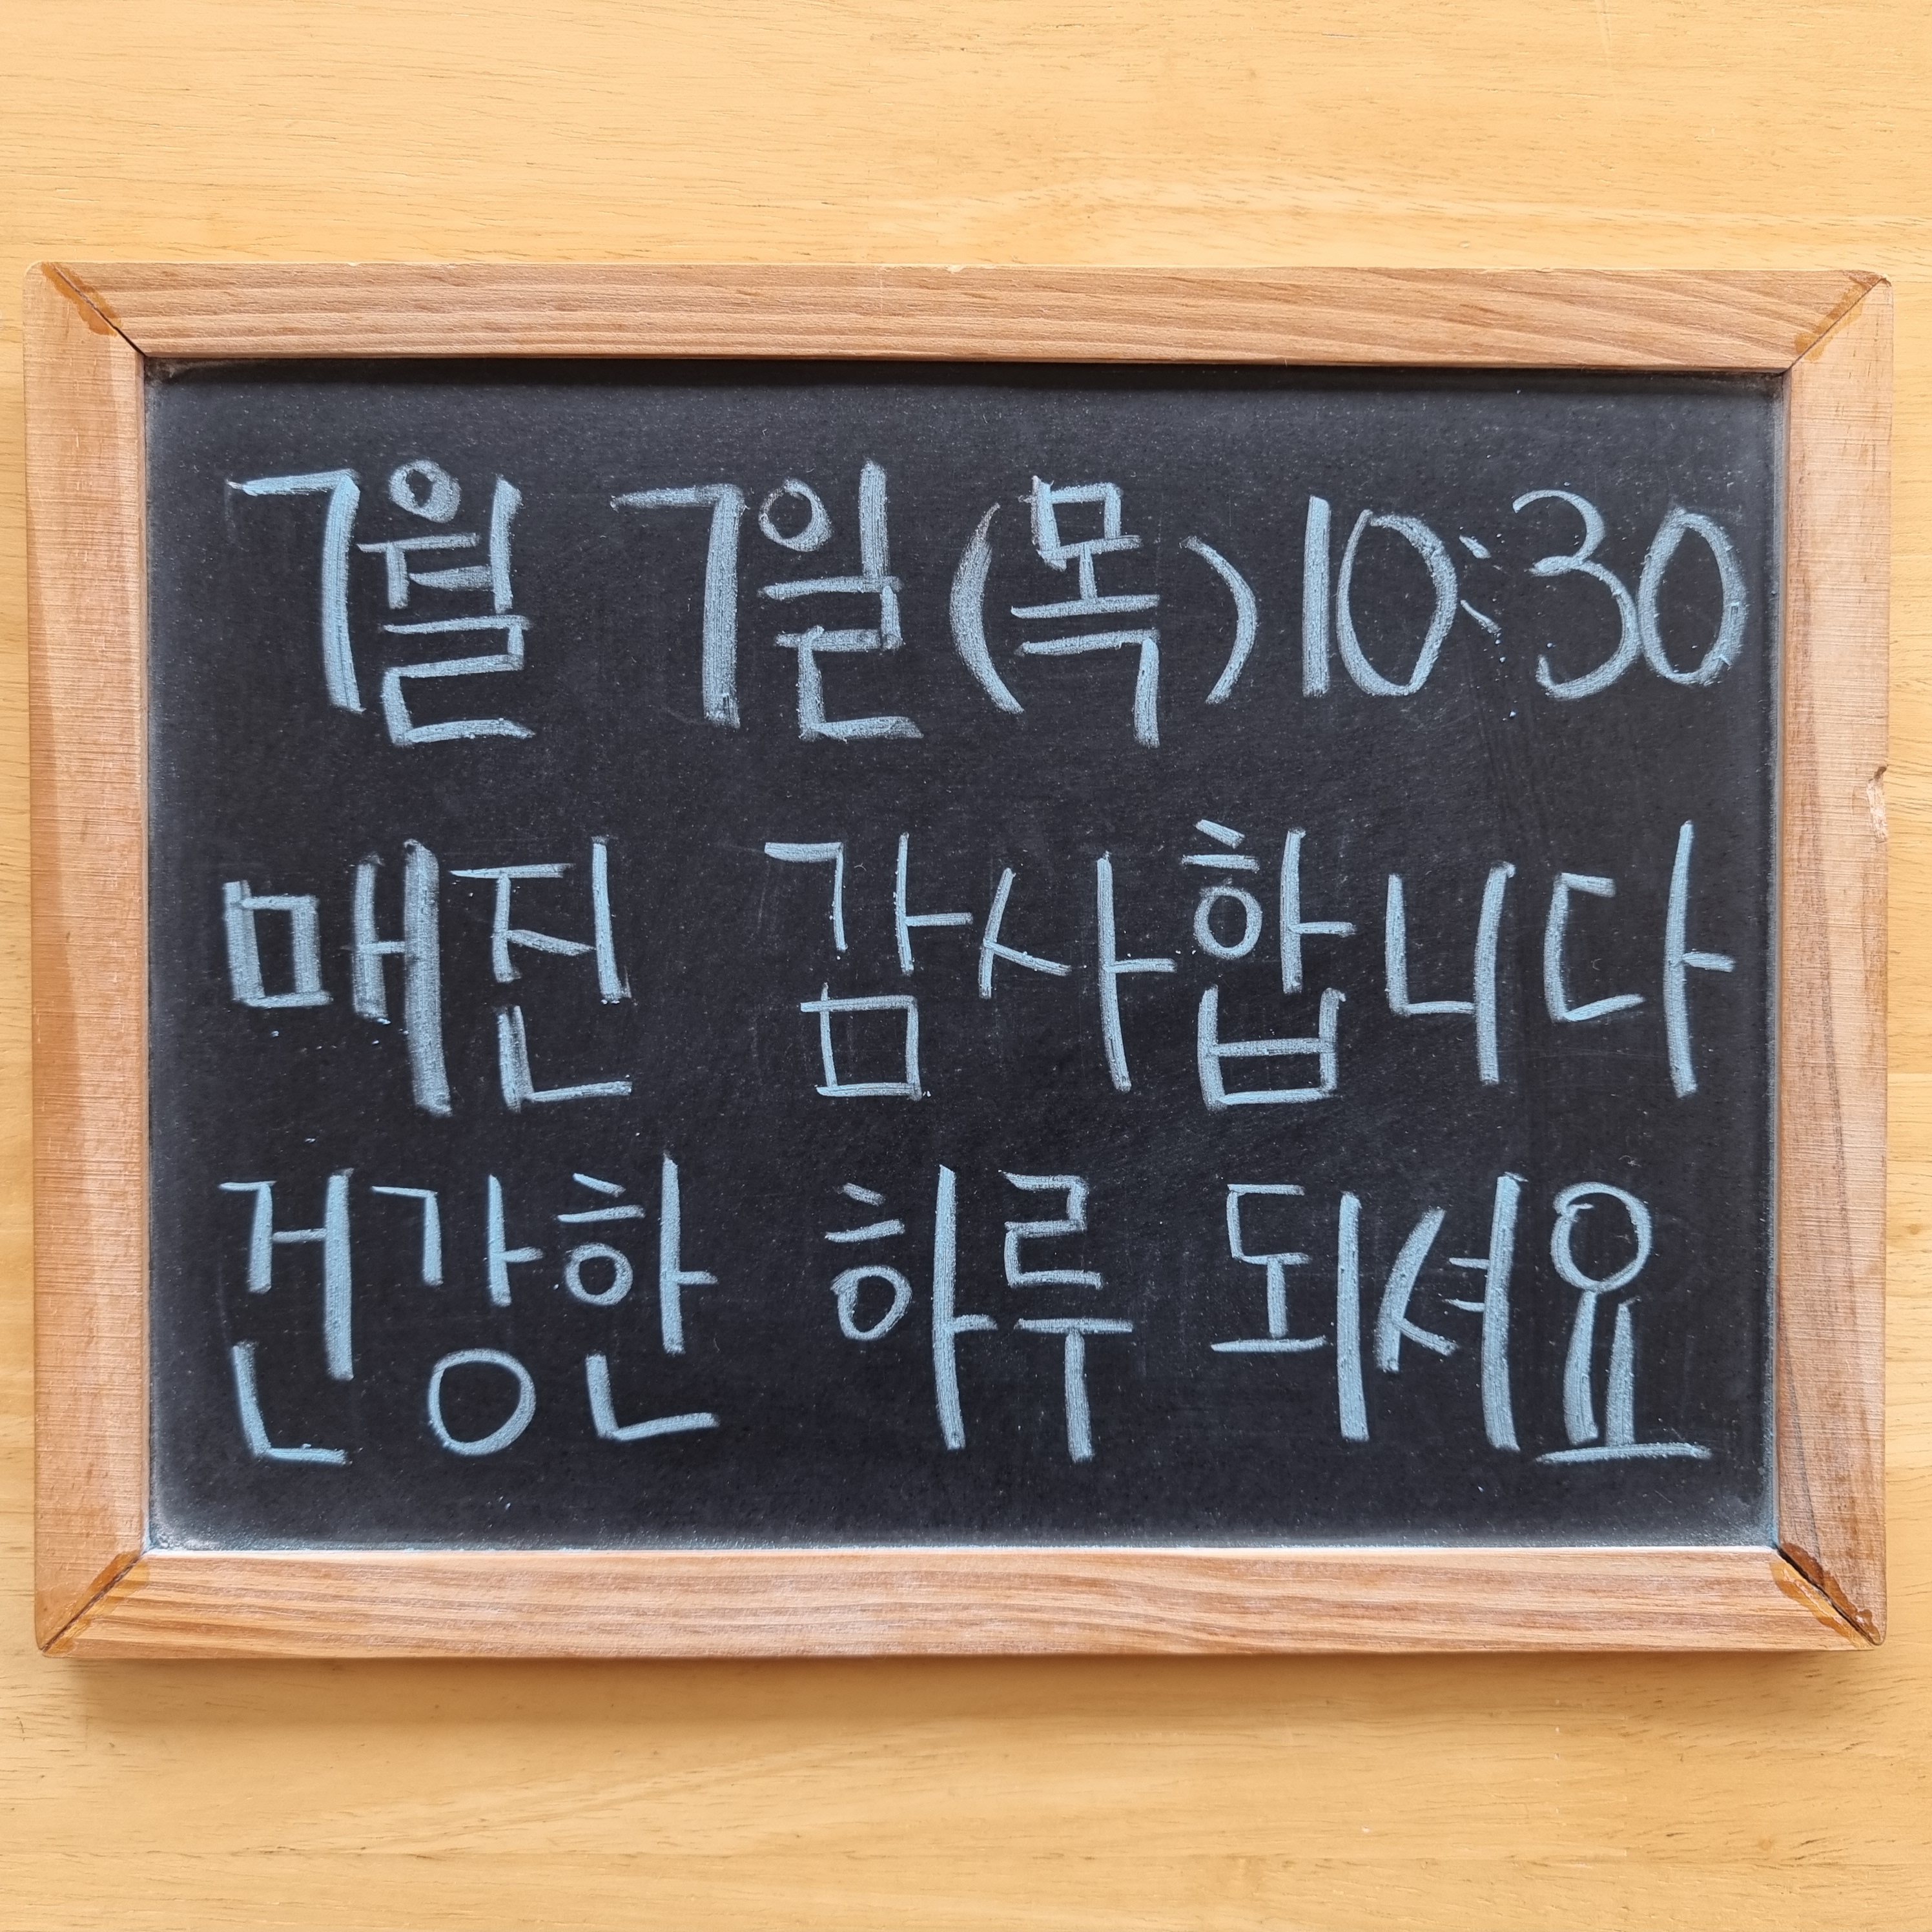 7월 7일(목) 10:30
매진 감사합니다
건강한 하루 되셔요